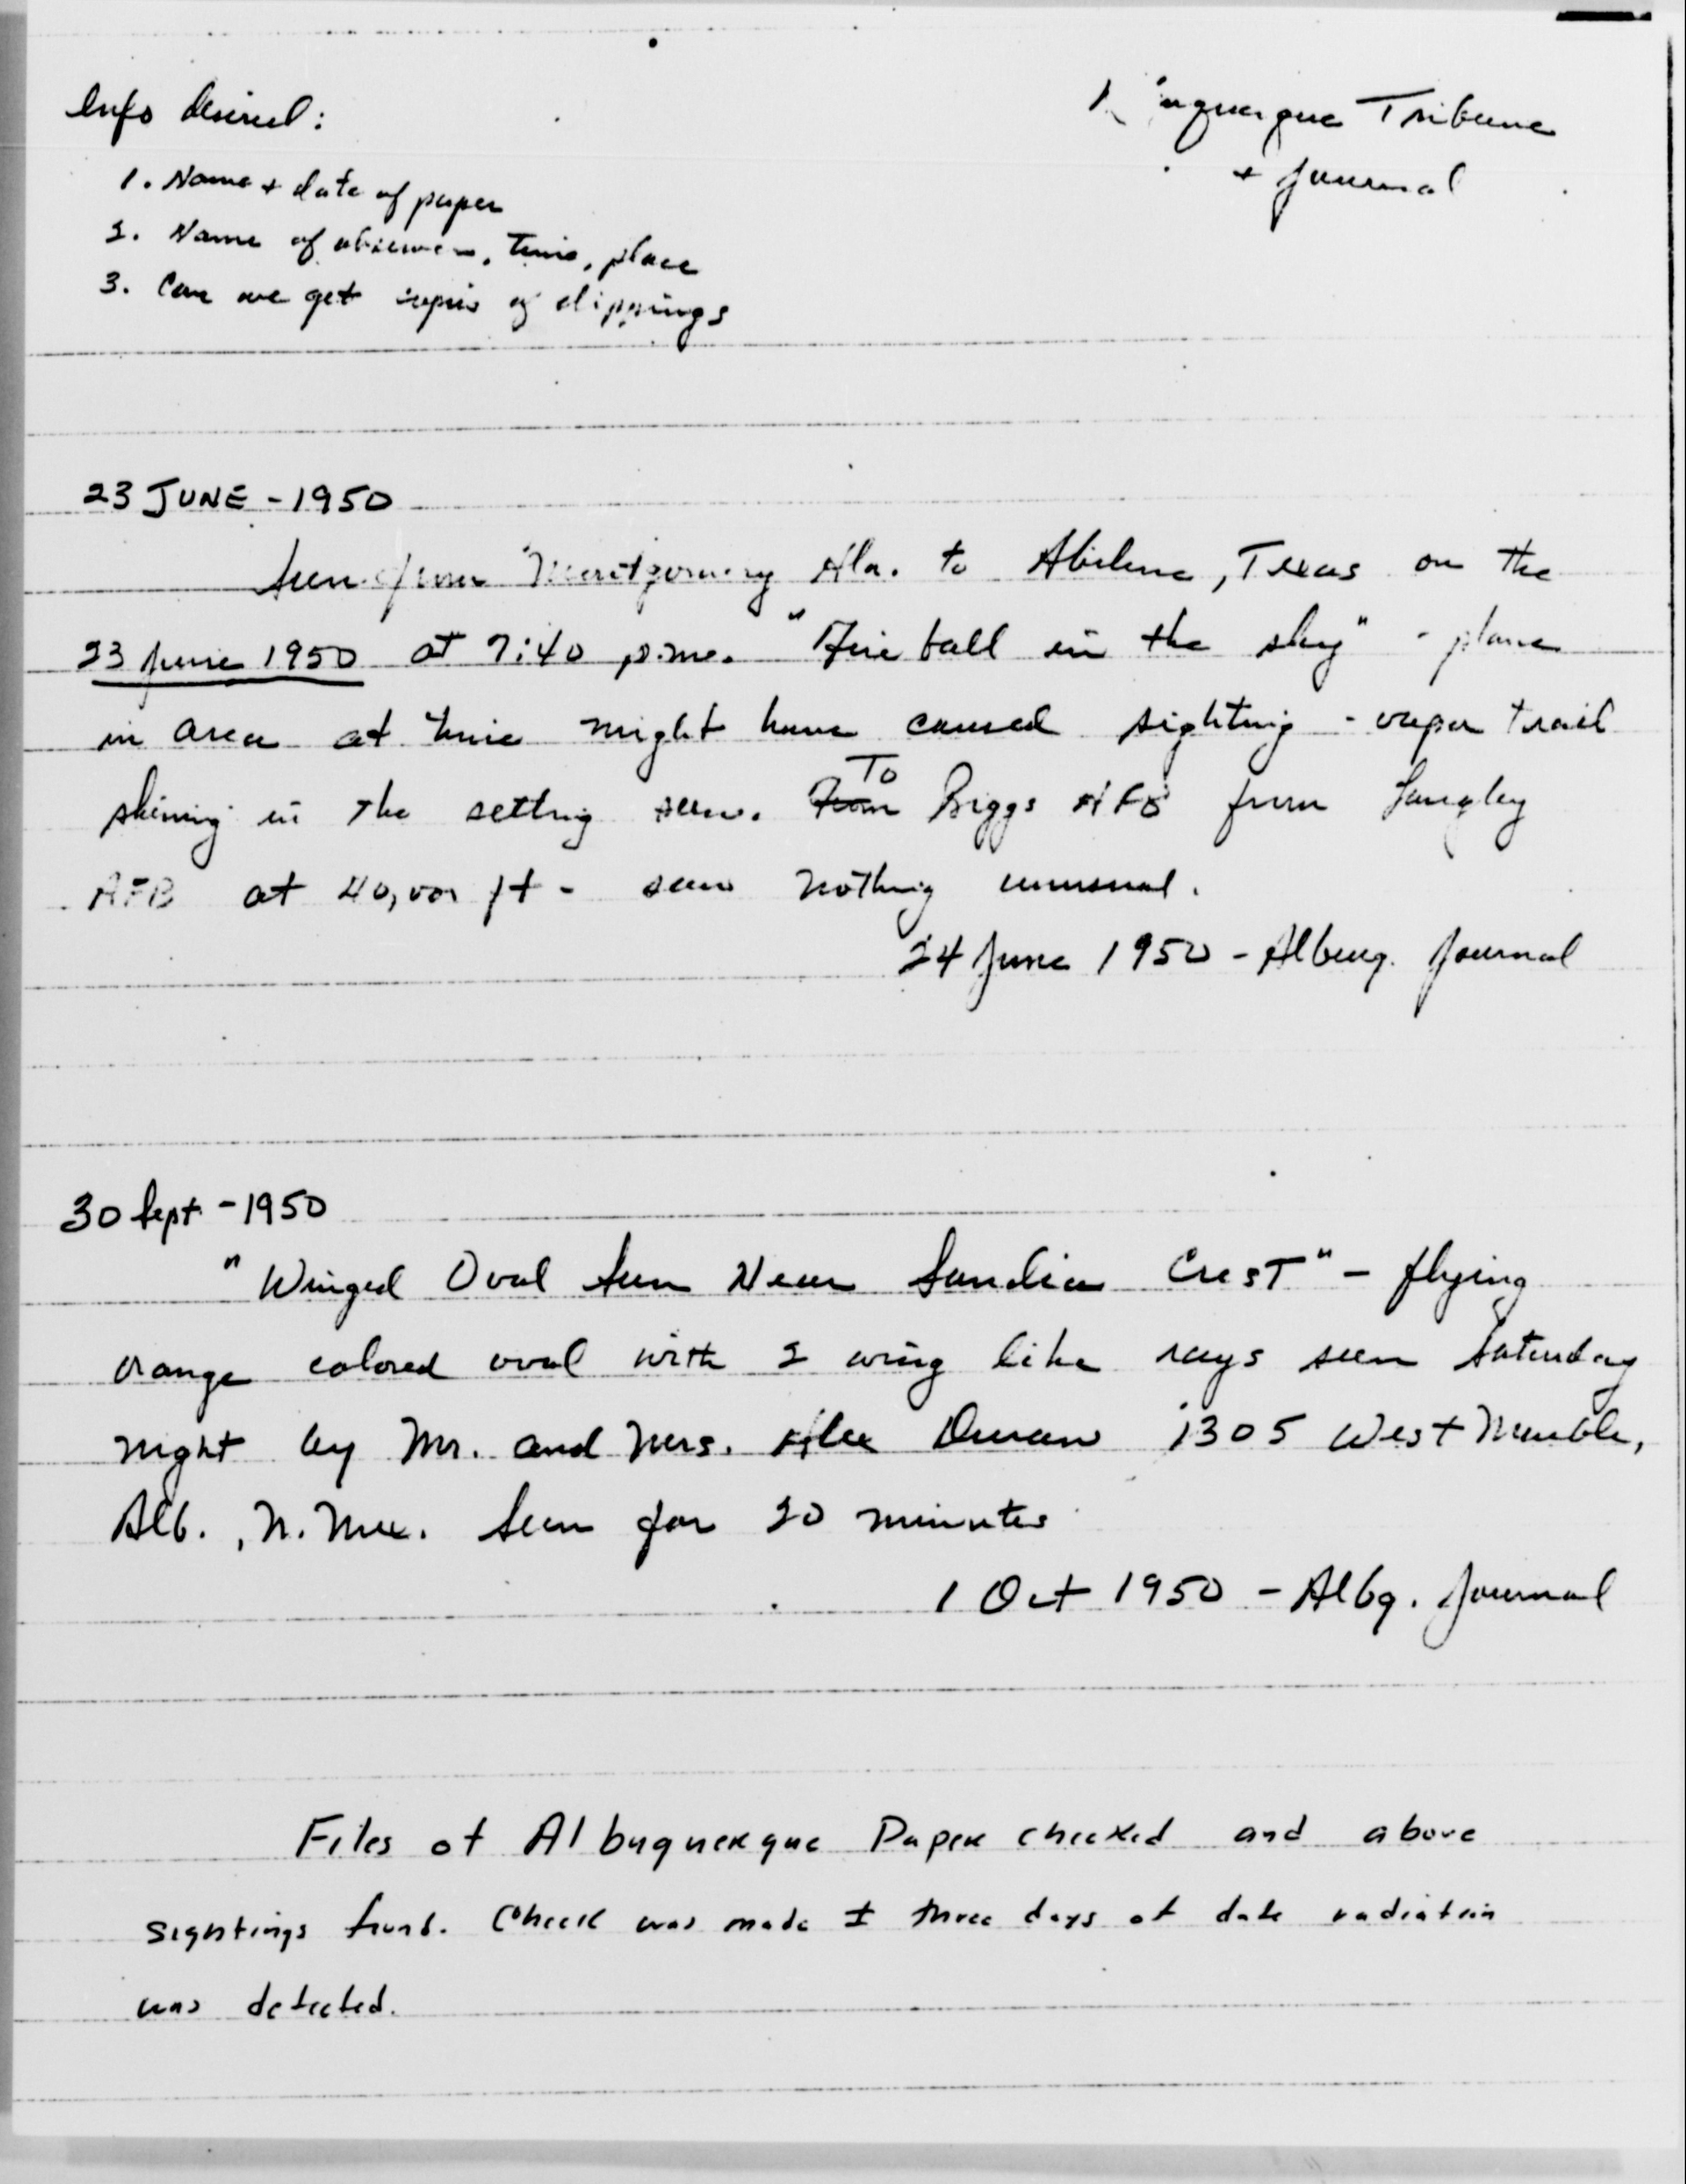 Info desired:
Albuquerque Tribune
+ Journal
1. Name + date of paper
2. Name of observers, time, place
3. Can we get copies of clippings
23 JUNE - 1950
Seen from Montgomery Ala. to Abilene, Texas on the
23 June 1950 at 7:40 p.m. "Fire ball in the sky" - plane
in area at time might have caused sighting - vapor trail
shining in the setting sun. From To Biggs AFB from Langley
AFB at 40,000 ft - saw nothing unusual.
24 June 1950 - Albuq. Journal
30 Sept - 1950
"Winged Oval Seen Near Sandia Crest" - flying
orange colored oval with 2 wing like rays seen Saturday
night by Mr. and Mrs. Alex Duran 1305 West
Alb., N. Mex. Seen for 20 minutes
1 Oct 1950 - Albq. Journal
Files of Albuquerque Paper checked and above
sightings found. Check was made ± three days of date radiation
was detected.